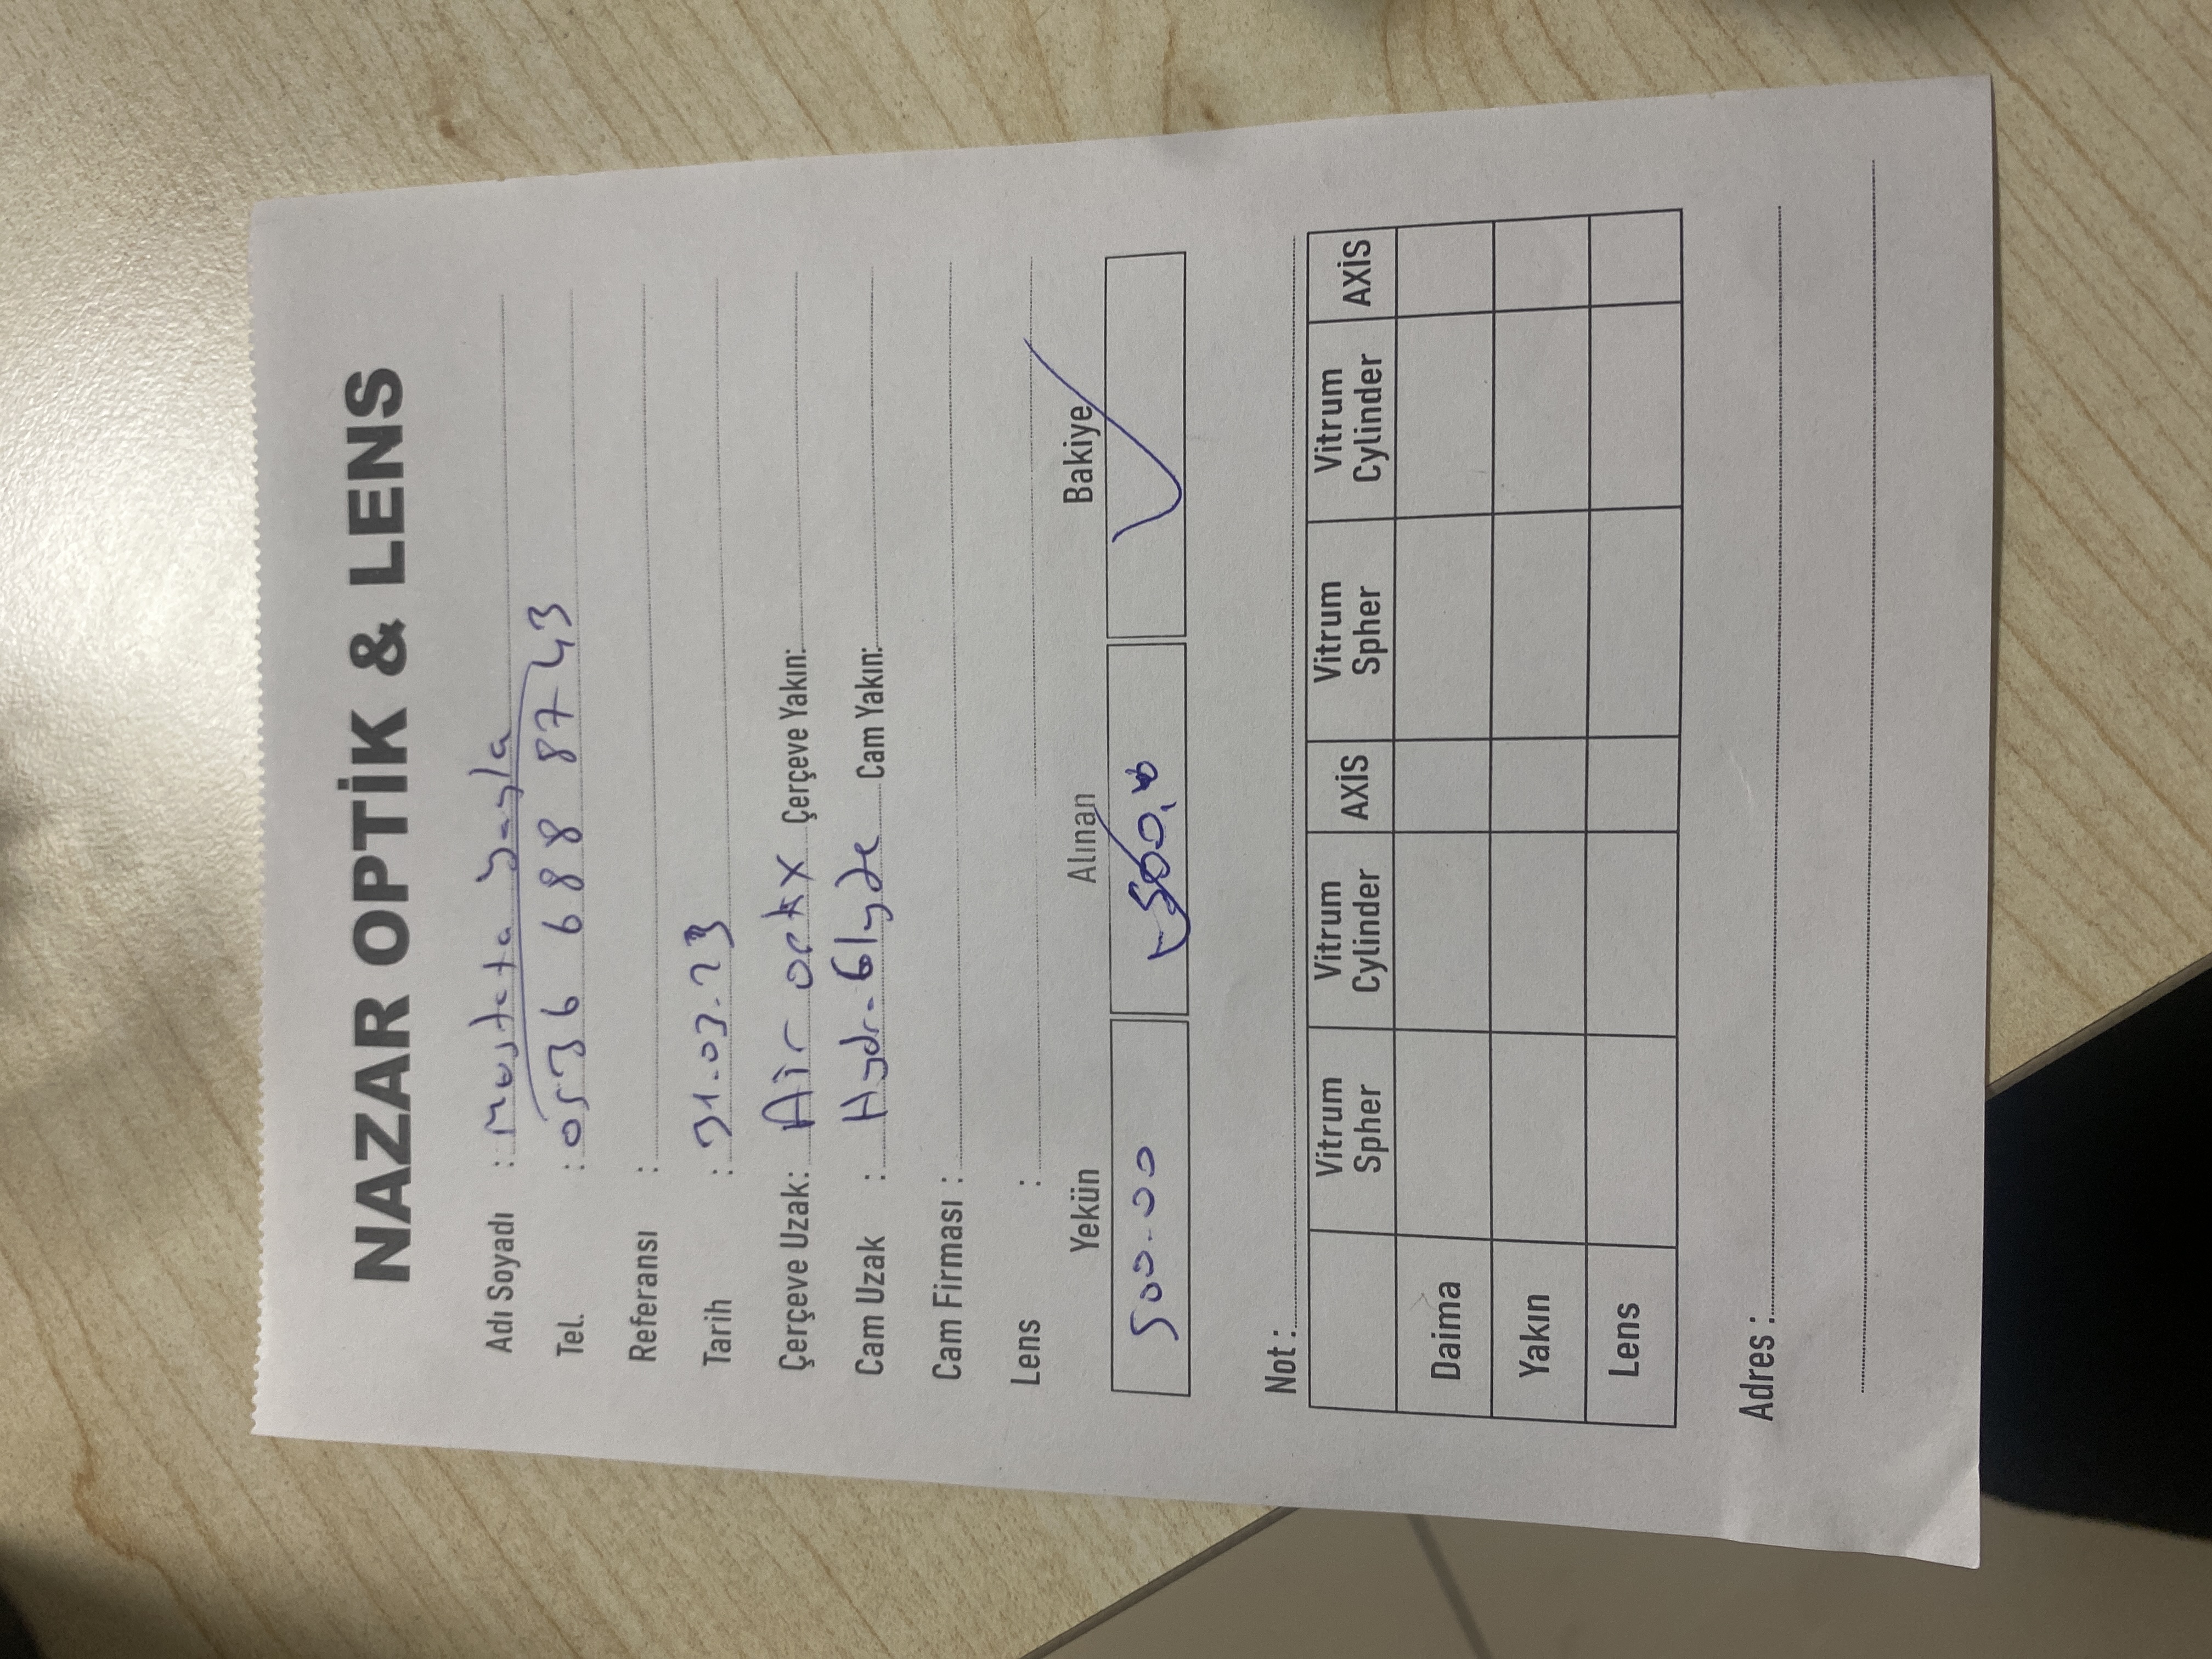 NAZAR OPTİK & LENS
Adı Soyadı : Mustafa Yayla
Tel. : 0536 688 8743
Referansı :
Tarih : 31.03.23
Çerçeve Uzak: Air optix Çerçeve Yakın:
Cam Uzak : Hydra Glyde Cam Yakın:
Cam Firması :
Lens :
Yekün Alınan Bakiye
500.00 500,00
Not :
Vitrum Spher Vitrum Cylinder AXİS Vitrum Spher Vitrum Cylinder AXİS
Daima
Yakın
Lens
Adres :